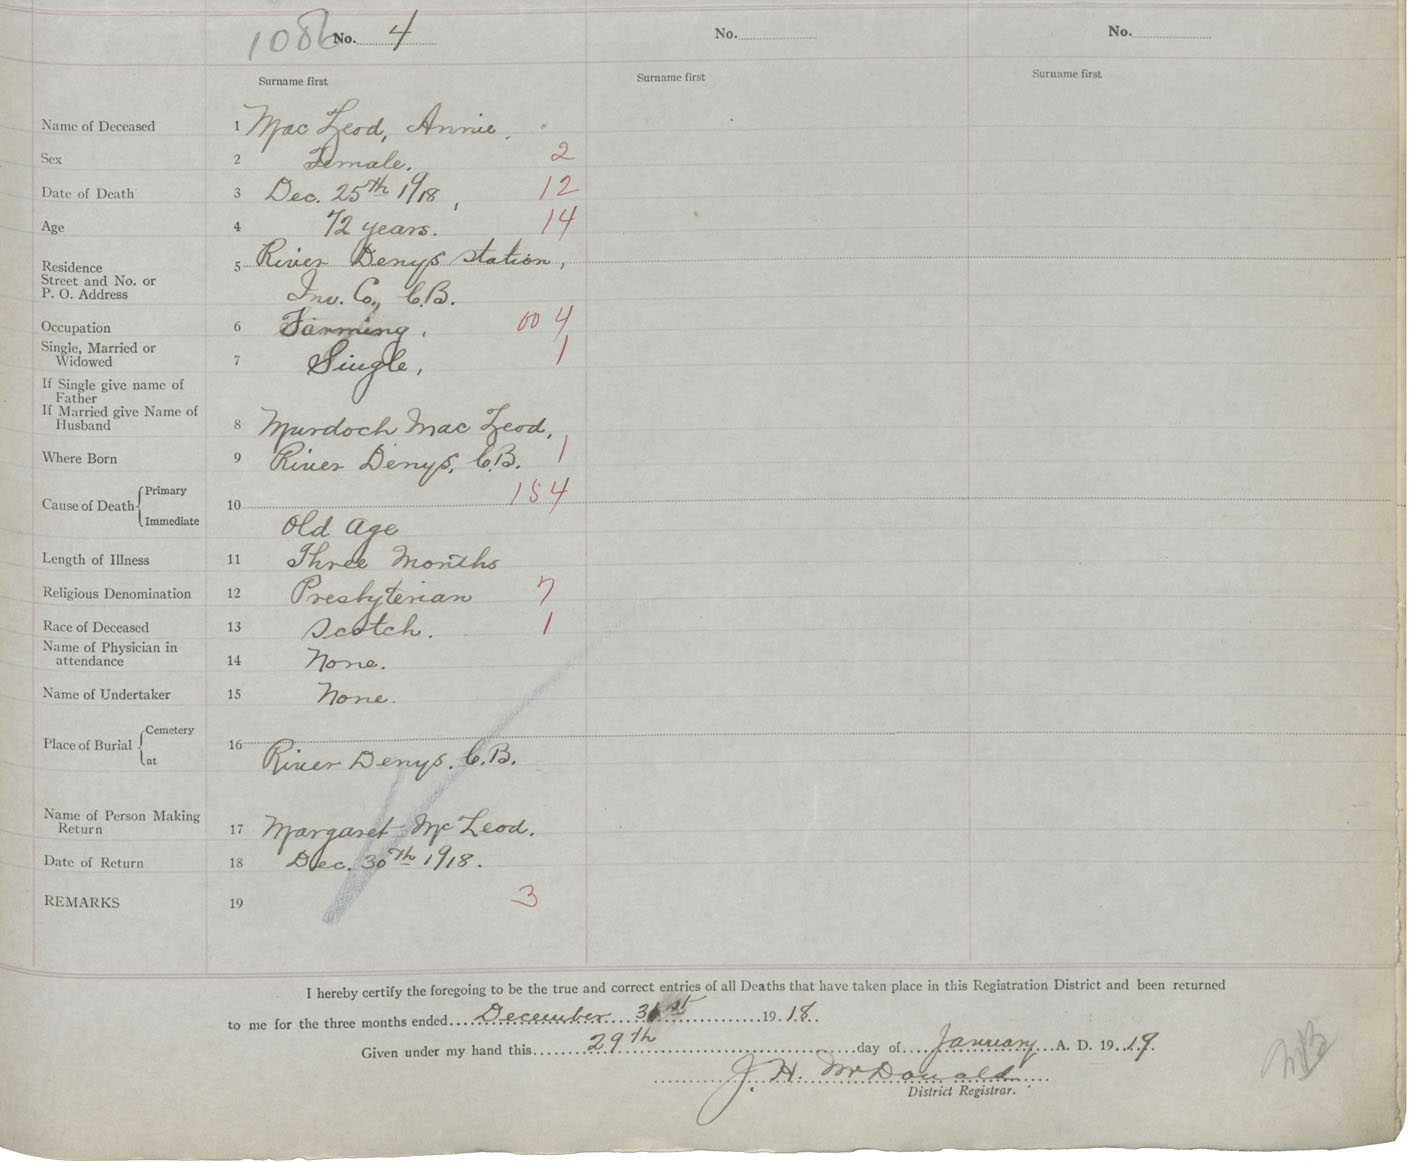 1086 No. 4 No. No.
Surname first Surname first Surname first
Name of Deceased 1 Mac Leod, Annie.
Sex 2 Female. 2
Date of Death 3 Dec. 25th 1918, 12
Age 4 72 years. 14
Residence 5 River Denys Station,
Street and No. or
P. O. Address Inv. Co., C.B.
Occupation 6 Farming, 00 4
Single, Married or
Widowed 7 Single, 1
If Single give name of
Father
If Married give Name of
Husband 8 Murdoch Mac Leod,
Where Born 9 River Denys, C.B. 1
Primary 154
Cause of Death 10
Immediate Old age
Length of Illness 11 Three Months
Religious Denomination 12 Presbyterian 7
Race of Deceased 13 Scotch. 1
Name of Physician in
attendance 14 None.
Name of Undertaker 15 None.
Cemetery
Place of Burial 16
at River Denys. C.B.
Name of Person Making
Return 17 Margaret McLeod.
Date of Return 18 Dec. 30th 1918.
REMARKS 19 3
I hereby certify the foregoing to be the true and correct entries of all Deaths that have taken place in this Registration District and been returned
to me for the three months ended December 31st 1918.
Given under my hand this 29th day of January A. D. 1919.
J. H. McDonald
District Registrar.